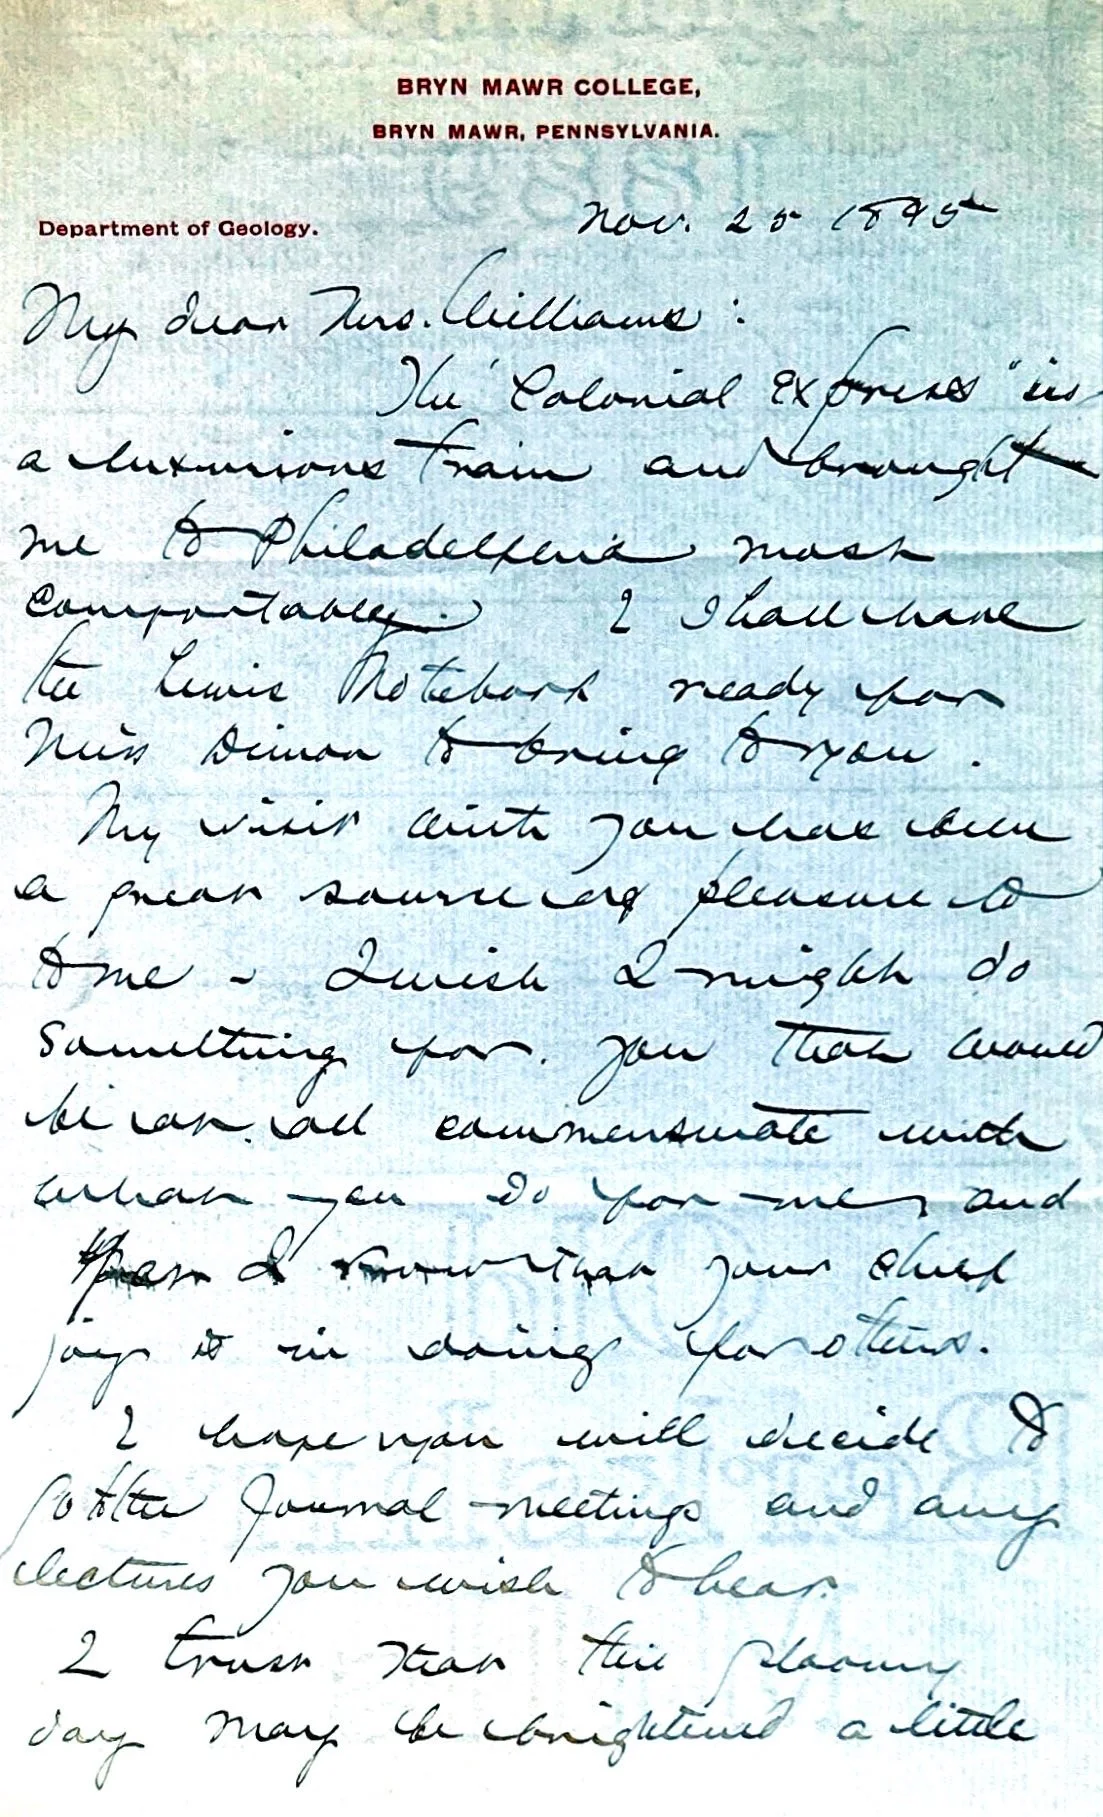 BRYN MAWR COLLEGE,
BRYN MAWR, PENNSYLVANIA.
Department of Geology.
Nov. 25 1895
My dear Mrs. Williams:
The "Colonial Express" is
a luxurious train and brought
me to Philadelphia most
comfortably. I shall have
the Lewis Notebook ready for
Miss Dimon to bring to you.
My visit with you has been
a great source of pleasure to
to me - I wish I might do
something for you that would
be at all commensurate with
what you do for me, and
I know that your chief
joy is in doing for others.
I hope you will decide to
go to the Journal meetings and any
lectures you wish to hear.
I trust that this gloomy
day may be brightened a little